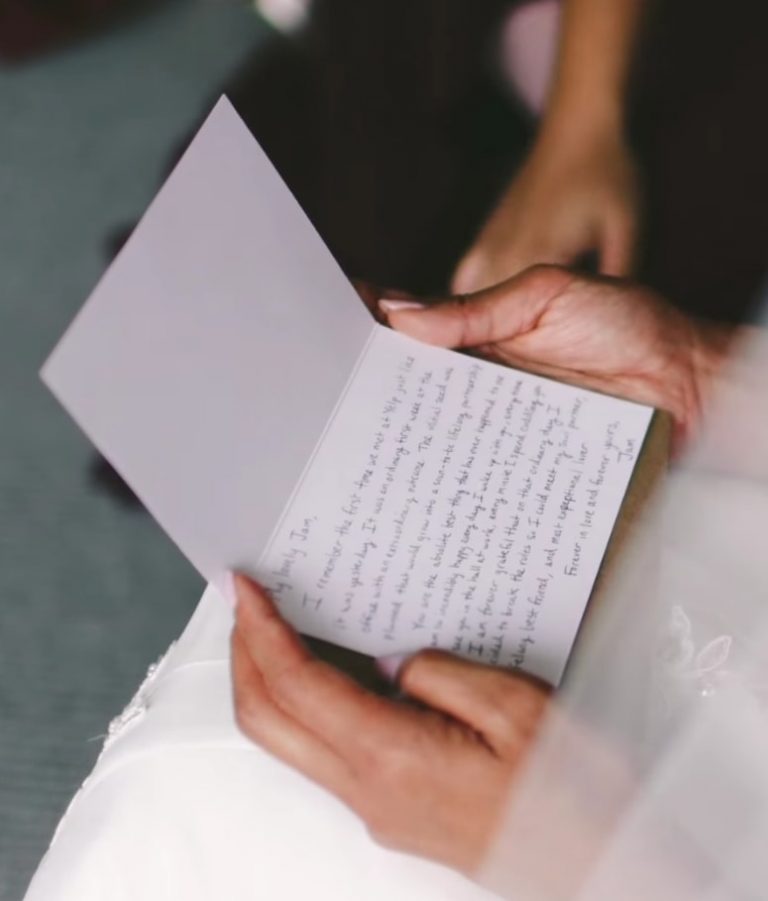 My lovely Jam,
I remember the first time we met at Yelp just like
it was yesterday. It was an ordinary first week at the
office with an extraordinary outcome. The initial seed was
planted that would grow into a soon-to-be lifelong partnership
You are the absolute best thing that has ever happened to me
am so incredibly happy every day I wake up with you, every time
see you in the hall at work, every minute I spend cuddling you
I am forever grateful that on that ordinary day I
decided to break the rules so I could meet my soul partner,
lifelong best friend, and most exceptional lover
Forever in love and forever yours,
Jam